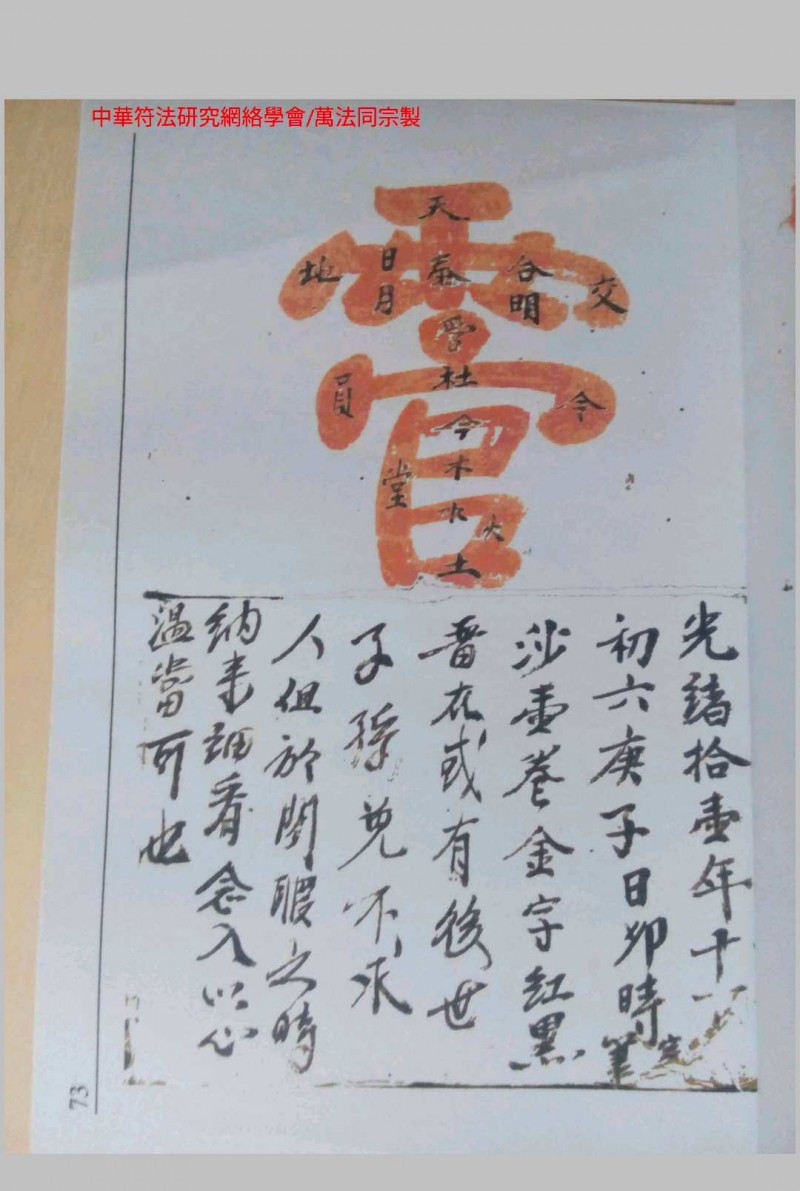 中華符法研究網絡學會/萬法同宗製
天
地 日月 合明 交
社
員 令
今
木
堂 水 火
土
光緒拾壹年十
初六庚子日卯時筆
沙壹卷金字紅黑
畨在或有後世
子孫免不求
人但於閑暇之時
納來細看念入以心
溫當可也
73